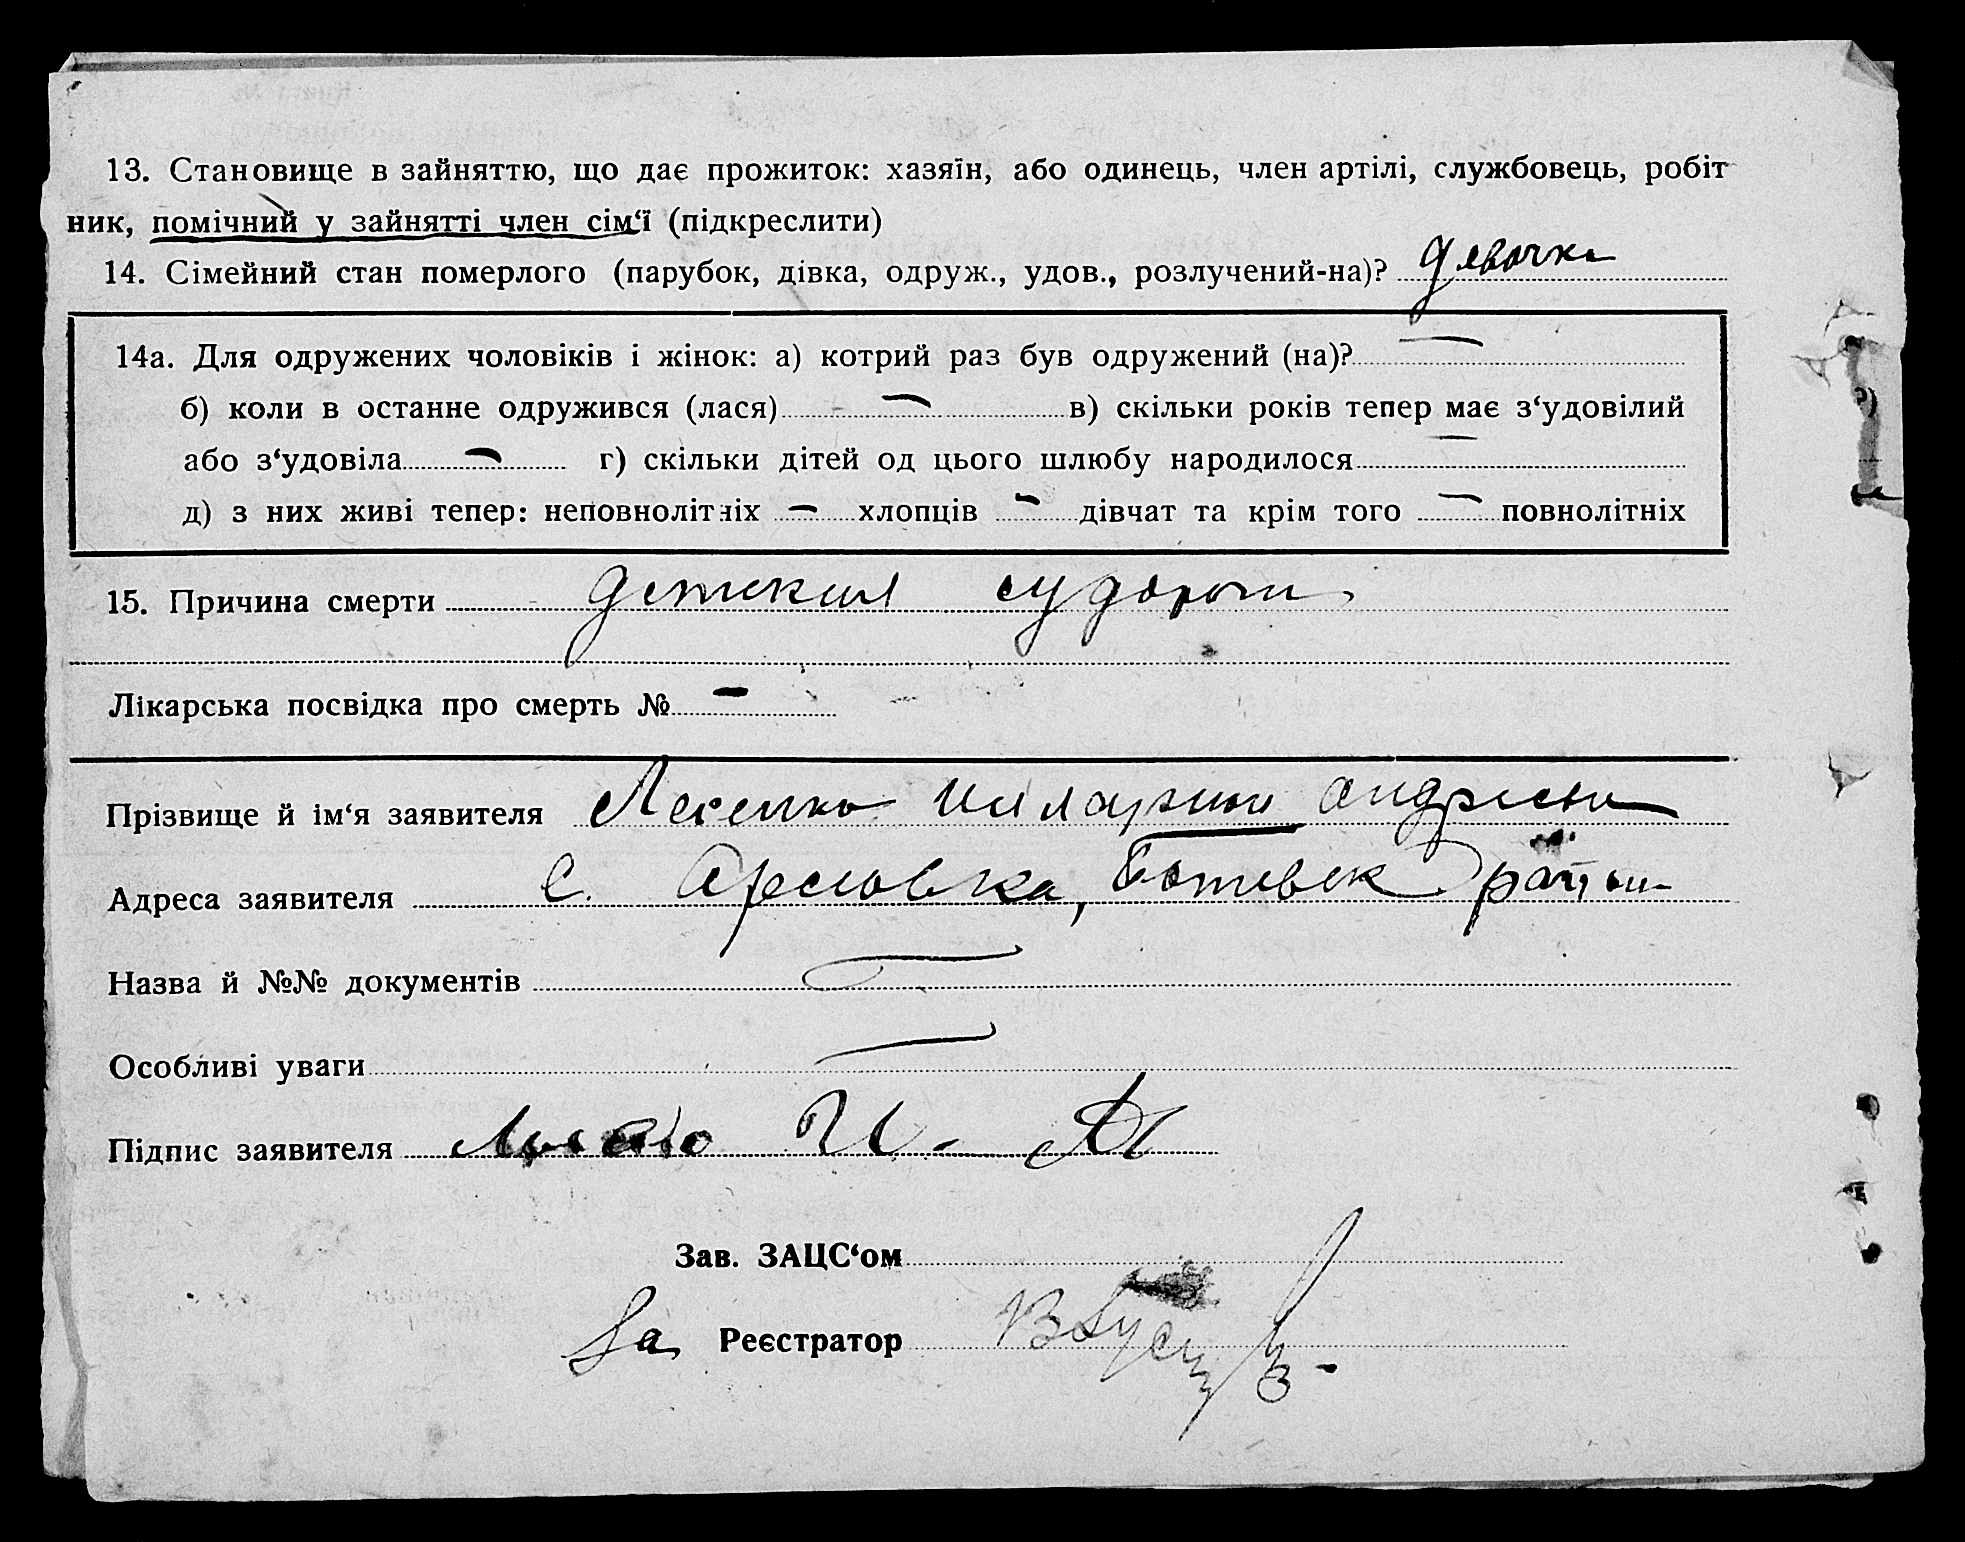 13. Становище в зайняттю, що дає прожиток: хазяїн, або одинець, член артілі, службовець, робіт
ник, помічний у зайнятті член сім‘ї (підкреслити)
14. Сімейний стан померлого (парубок, дівка, одруж., удов., розлучений-на)? девочка
14а. Для одружених чоловіків і жінок: а) котрий раз був одружений (на)? —
б) коли в останне одружився (лася) — в) скільки років тепер має з‘удовілий
або з‘удовіла — г) скільки дітей од цього шлюбу народилося —
д) з них живі тепер: неповнолітніх — хлопців — дівчат та крім того — повнолітніх
15. Причина смерти детския судороги
Лікарська посвідка про смерть № —
Прізвище й ім‘я заявителя
Адреса заявителя с. район
Назва й №№ документів —
Особливі уваги —
Підпис заявителя И. А
Зав. ЗАЦС‘ом
За Реєстратор